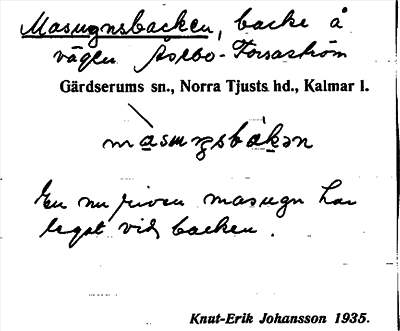 Masugnsbacken, backe å
vägen Åselbo - Forsaström
Gärdserums sn., Norra Tjusts hd., Kalmar l.
En nu riven masugn har
legat vid backen.
Knut-Erik Johansson 1935.